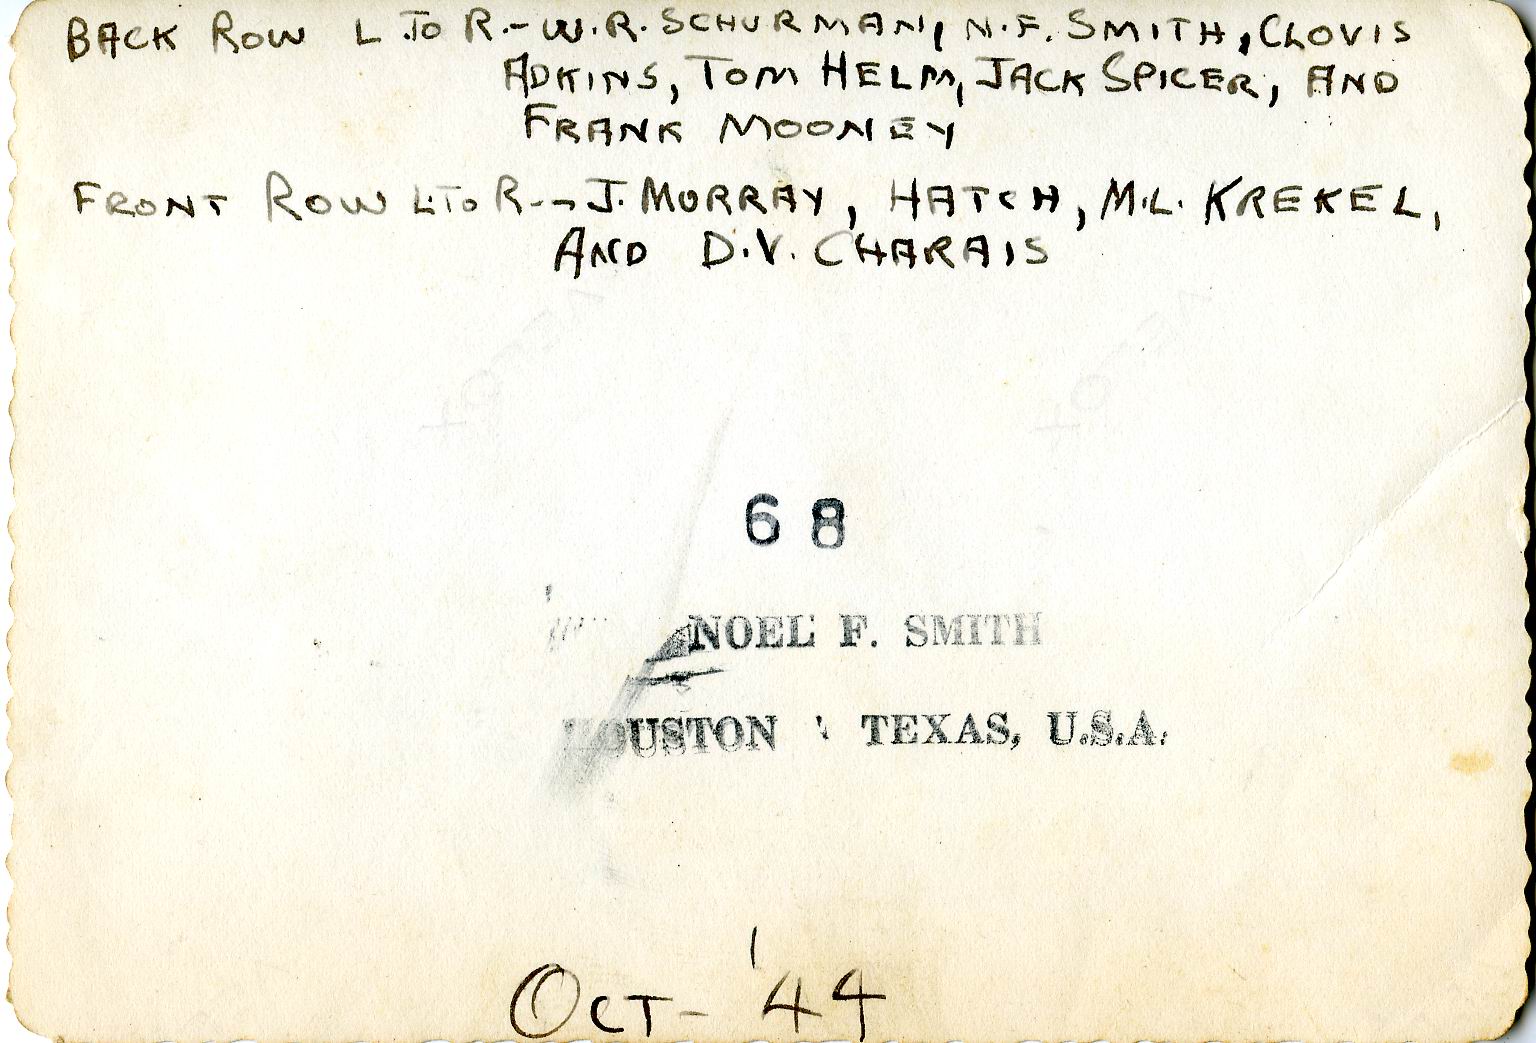 BACK ROW L TO R.- W.R. SCHURMAN, N.F. SMITH, CLOVIS
ADKINS, TOM HELM, JACK SPICER, AND
FRANK MOONEY
FRONT ROW L TO R-- J. MURRAY, HATCH, M.L. KREKEL,
AND D.V. CHARAIS
68
NOEL F. SMITH
HOUSTON TEXAS, U.S.A.
OCT- '44